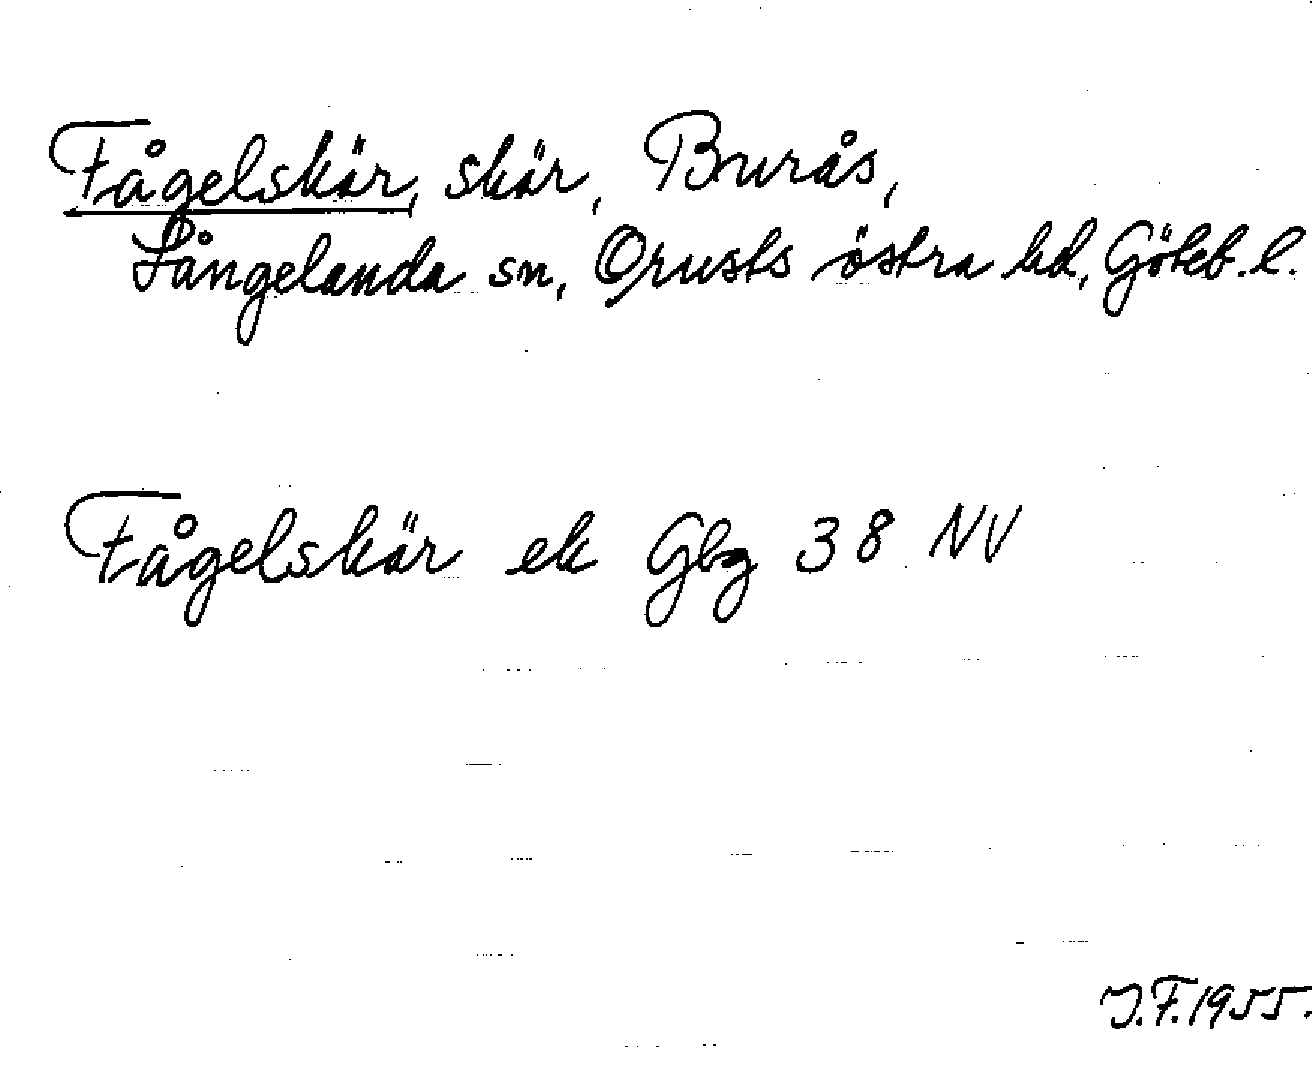 Fågelskär, skär, Burås,
Långelanda sn, Orusts östra hd, Göteb. l.
Fågelskär ek Gbg 38 NV
J.F. 1955.